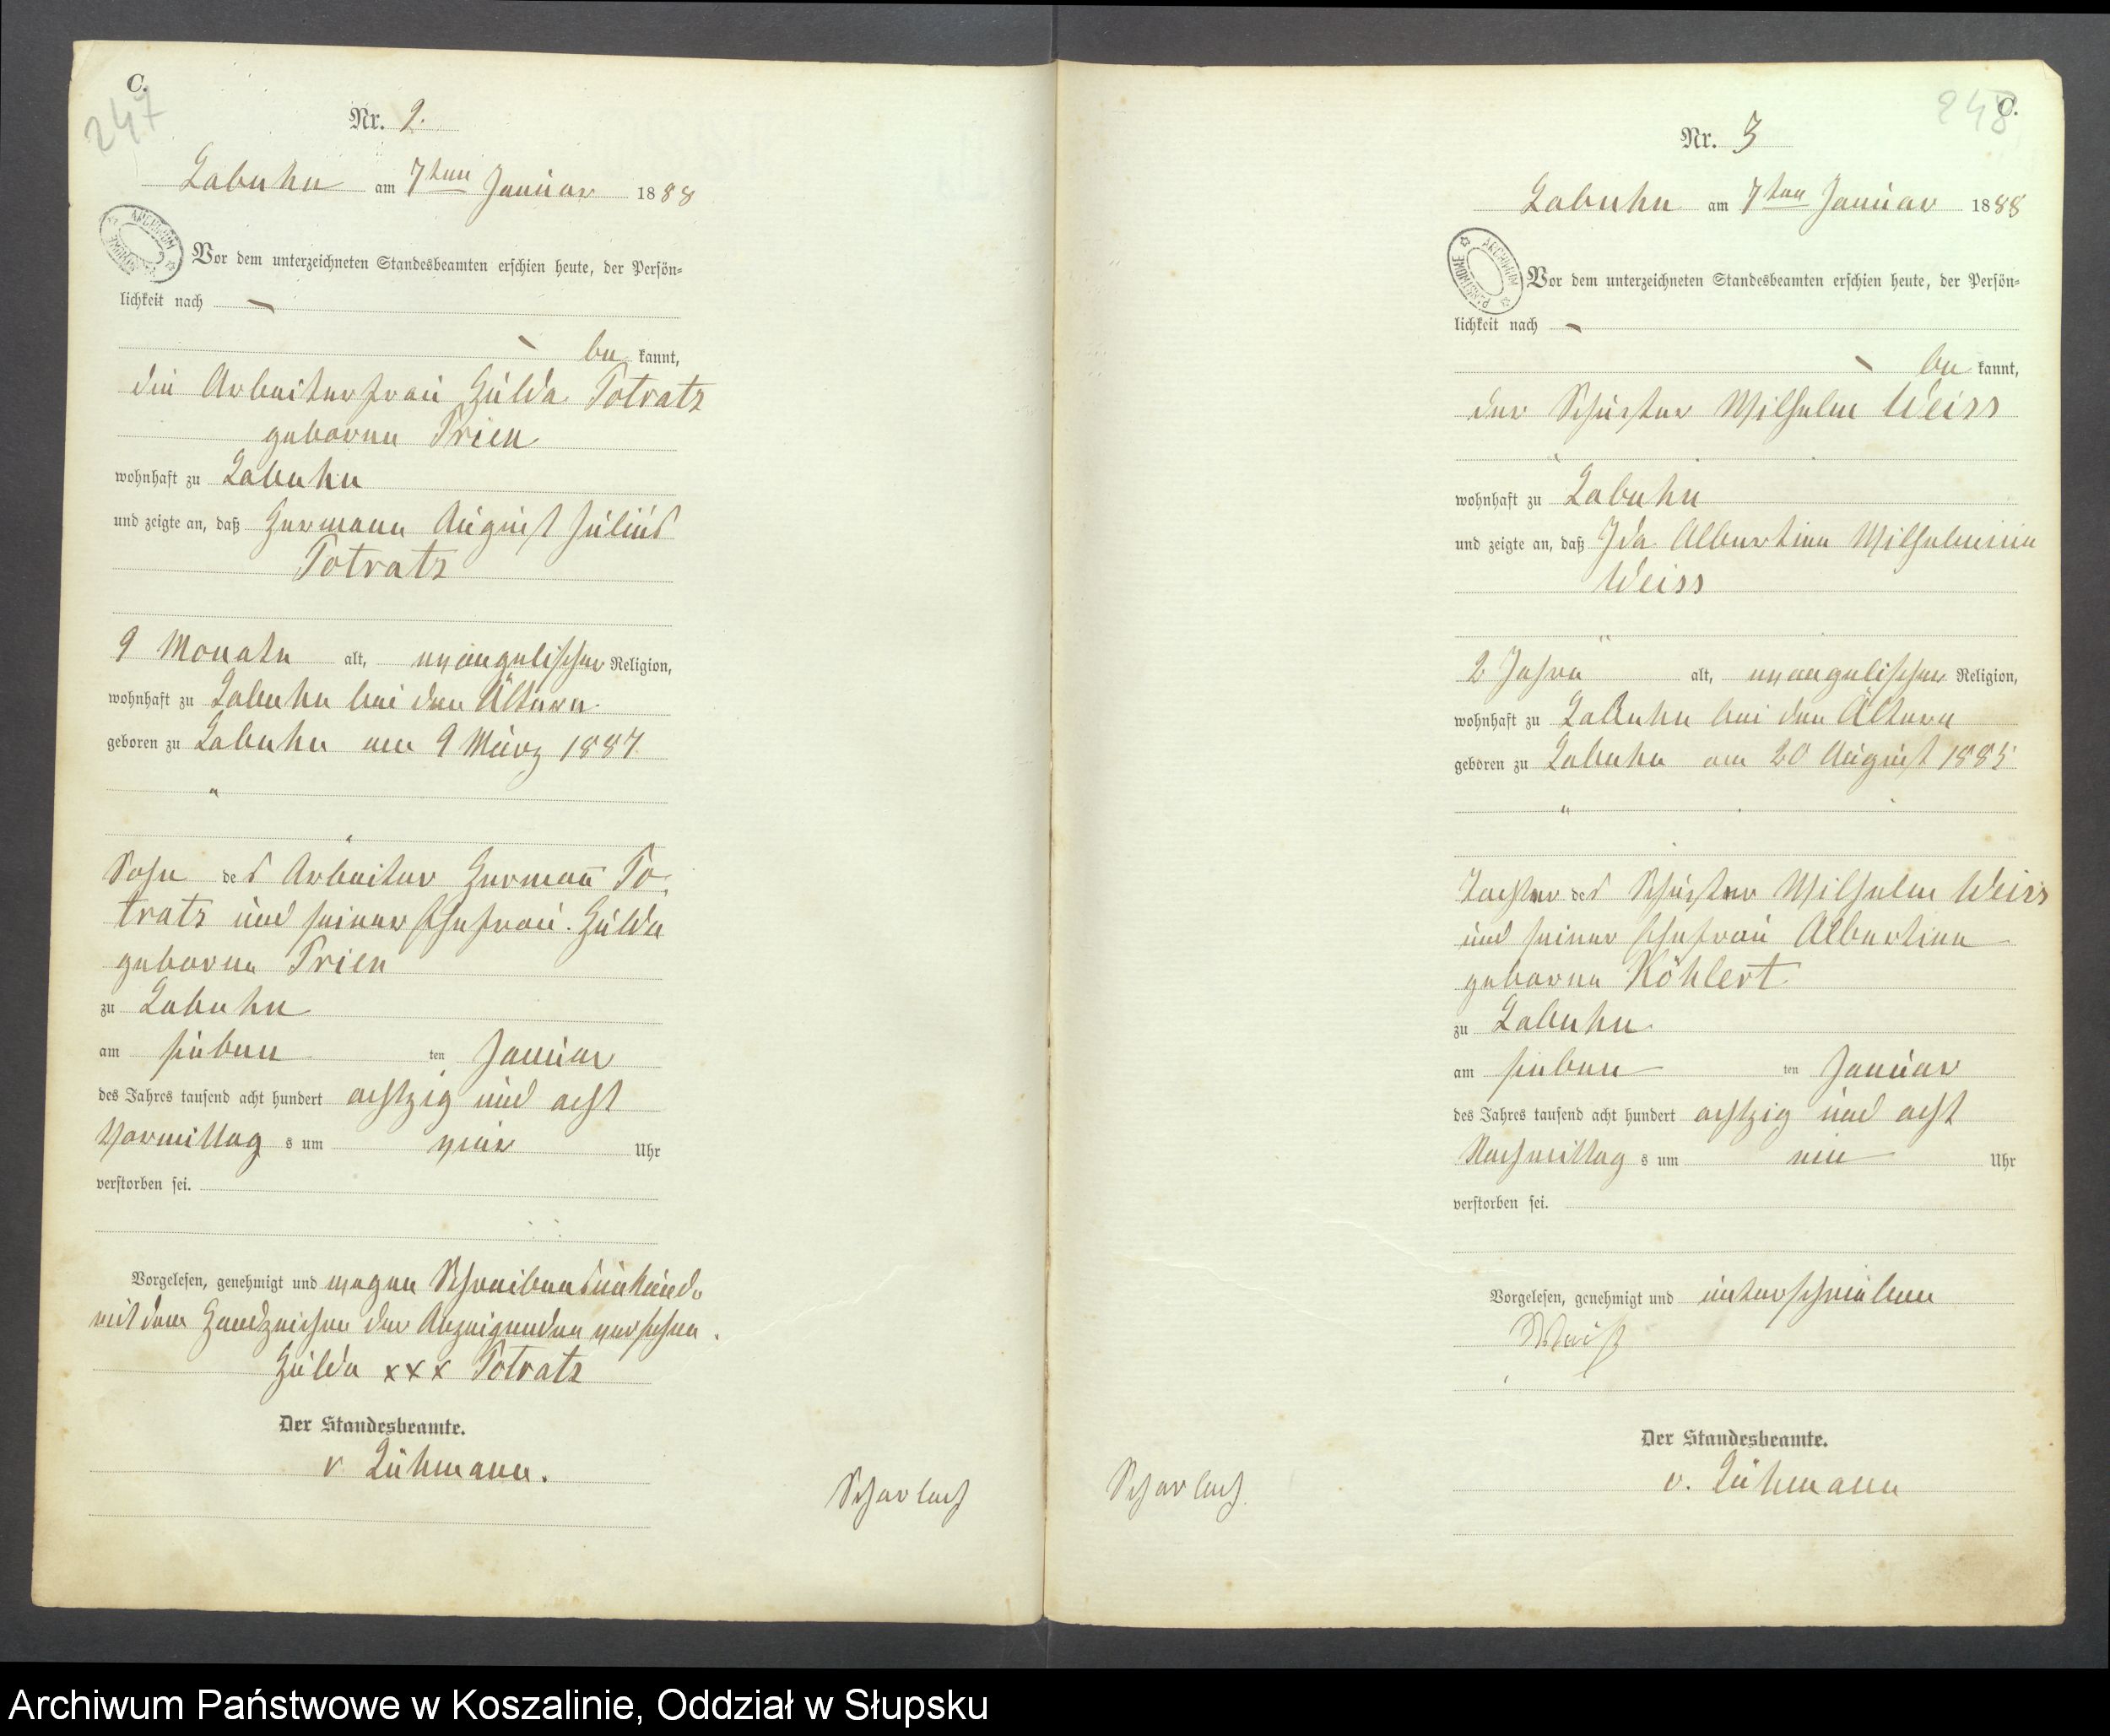 C.
247
Nr. 2.
Labuhn am 7ten Januar 1888
Vor dem unterzeichneten Standesbeamten erschien heute, der Persön-
lichkeit nach
be kannt,
die Arbeiterfrau Hulda Potratz
geborne Prien
wohnhaft zu Labuhn
und zeigte an, daß Hermann August Julius
Potratz
9 Monate alt, evangelischer Religion,
wohnhaft zu Labuhn bei den Ältern
geboren zu Labuhn am 9 März 1887
Sohn des Arbeiter Hermann̄ Po-
tratz und seiner Ehefrau Hulda
geborne Prien
zu Labuhn
am sieben ten Januar
des Jahres tausend acht hundert achtzig und acht
Vormittag s um vier Uhr
verstorben sei.
Vorgelesen, genehmigt und wegen Schreibensunkunde
mit dem Handzeichen der Anzeigenden versehen.
Hulda xxx Potratz
Der Standesbeamte.
v Lühmann.
Scharlach
C.
248
Nr. 3
Labuhn am 7ten Januar 1888
Vor dem unterzeichneten Standesbeamten erschien heute, der Persön-
lichkeit nach
be kannt,
der Schuster Wilhelm Weiss
wohnhaft zu Labuhn
und zeigte an, daß Ida Albertine Wilhelmine
Weiss
2 Jahre alt, evangelischer Religion,
wohnhaft zu Labuhn bei den Ältern
geboren zu Labuhn am 20 August 1885
Tochter des Schuster Wilhelm Weiss
und seiner Ehefrau Albertine
geborne Köhlert
zu Labuhn
am sieben ten Januar
des Jahres tausend acht hundert achtzig und acht
Nachmittag s um ein Uhr
verstorben sei.
Vorgelesen, genehmigt und unterschrieben
WWeiß
Der Standesbeamte.
v. Lühmann
Scharlach
Archiwum Państwowe w Koszalinie, Oddział w Słupsku